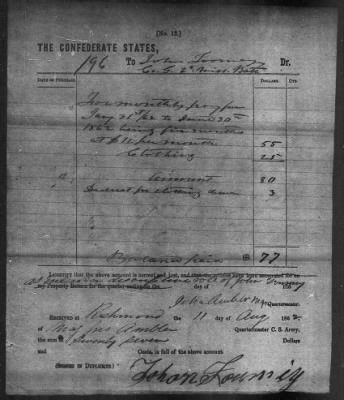 [No. 12.]
THE CONFEDERATE STATES,
196 To John Toomey Dr.
Co. G. 2d Miss. Batt
DATE OF PURCHASE. DOLLARS. CTS.
For monthly pay from
Jany 31st/62 to June 30th
1862 being five months
at $11 per month 55
Clothing 25
Amount 80
for clothing 3
Balance paid $ 77
I CERTIFY that the above account is correct and just, and that the articles have been accounted for on
my Property Return for the quarter ending the day of
of John Toomey
Quartermaster.
RECEIVED at Richmond the 11 day of Aug 1862,
of Maj Jas Ambler Quartermaster C. S. Army,
the sum of Seventy seven Dollars
and Cents, in full of the above account.
(SIGNED IN DUPLICATE.)